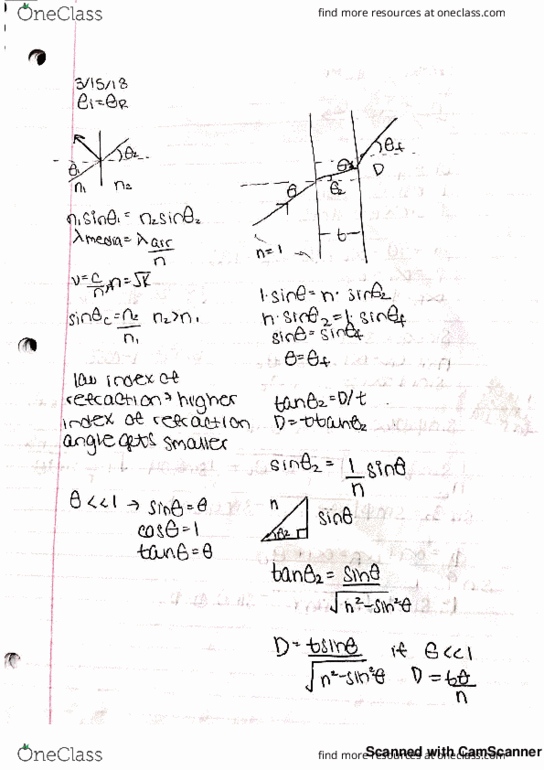 OneClass
find more resources at oneclass.com
3/15/18
θi=θR
θ1
θ2
n1
n2
n1sinθ1= n2sinθ2
λmedia= λair/n
v=c/n, n=√K
sinθc=n2/n1 n2>n1
low index of
refraction→higher
index of refraction
angle gets smaller
θ<<1 → sinθ=θ
cosθ=1
tanθ=θ
θ
θ2
θ2
θf
D
t
n=1
1·sinθ=n·sinθ2
n·sinθ2=1·sinθf
sinθ=sinθf
θ=θf
tanθ2=D/t
D=t tanθ2
sinθ2= 1/n sinθ
n
sinθ
θ2
tanθ2= sinθ/√n²-sin²θ
D= tsinθ/√n²-sin²θ if θ<<1
D= tθ/n
OneClass
find more resources at oneclass.com
Scanned with CamScanner